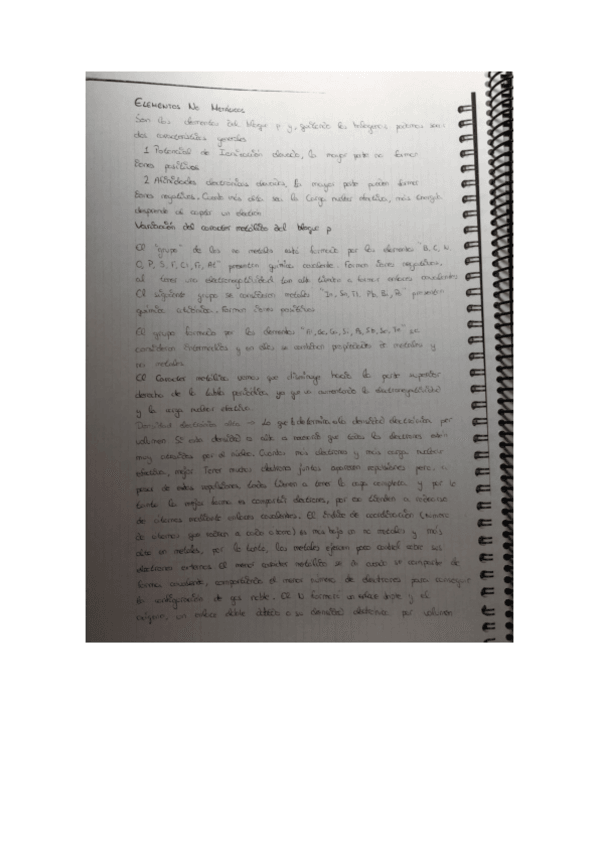 ELEMENTOS NO METÁLICOS
Son los elementos del bloque p y, quitando los halógenos podemos
dos características generales
1 Potencial de Ionización elevado, la mayor parte no forman
Iones positivos
2 Afinidades electrónicas elevadas, la mayor parte pueden formar
Iones negativos. Cuanto más alta sea la Carga nuclear efectiva, más energía
desprende al captar un electrón
Variación del caracter metálico del bloque p
El "grupo" de los no metales está formado por los elementos "B, C, N,
O, P, S, F, Cl, At" presentan química covalente. Forman iones negativos,
al tener una electronegatividad tan alta tienden a formar enlaces covalentes
El siguiente grupo se consideran metales "In, Sn, Tl, Pb, Bi, Po" presentan
química catiónica. forman iones positivos
El grupo formado por los elementos se
consideran Intermedios y en ellos se combinan propiedades de metales y
no metales
El Caracter metálico vemos que disminuye hacia la parte superior
derecha de la tabla periódica, ya que va aumentando la electronegatividad
y la carga nuclear efectiva.
Densidad electrónica alta → Lo que determina la densidad electrónica por
volumen Si esta densidad es alta es necesario que todos los electrones estén
muy atraídos por el núcleo. Cuantos más electrones y más carga nuclear
efectiva, mejor Tener muchos electrones juntos suponen repulsiones pero, a
pesar de estas repulsiones, todos tienden a tener la capa completa y por lo
tanto la mejor forma es compartir electrones, por eso tienden a
de átomos mediante enlaces covalentes. El índice de coordinación (número
de átomos que rodean a cada átomo) es mas baja en no metales y más
alta en metales, por lo tanto, los metales ejercen poco control sobre sus
electrones externos. El menor caracter metálico se da cuando se comparten de
forma covalente, compartiendo el menor número de electrones para conseguir
la configuración de gas noble. El N formará un enlace triple y el
oxígeno, un enlace doble debido a su densidad electrónica por volumen